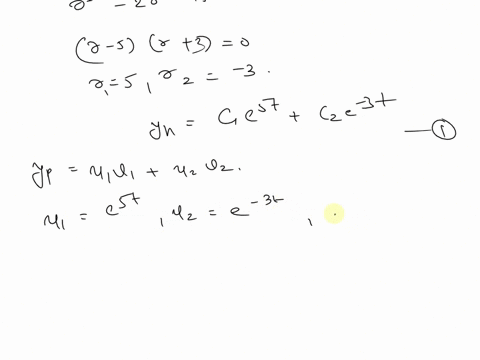 (r-5) (r+3) = 0
r₁=5, r₂ = -3.
yh = C₁e^{5t} + C₂e^{-3t} —①
yp = u₁v₁ + u₂v₂.
u₁ = e^{5t}, u₂ = e^{-3t},